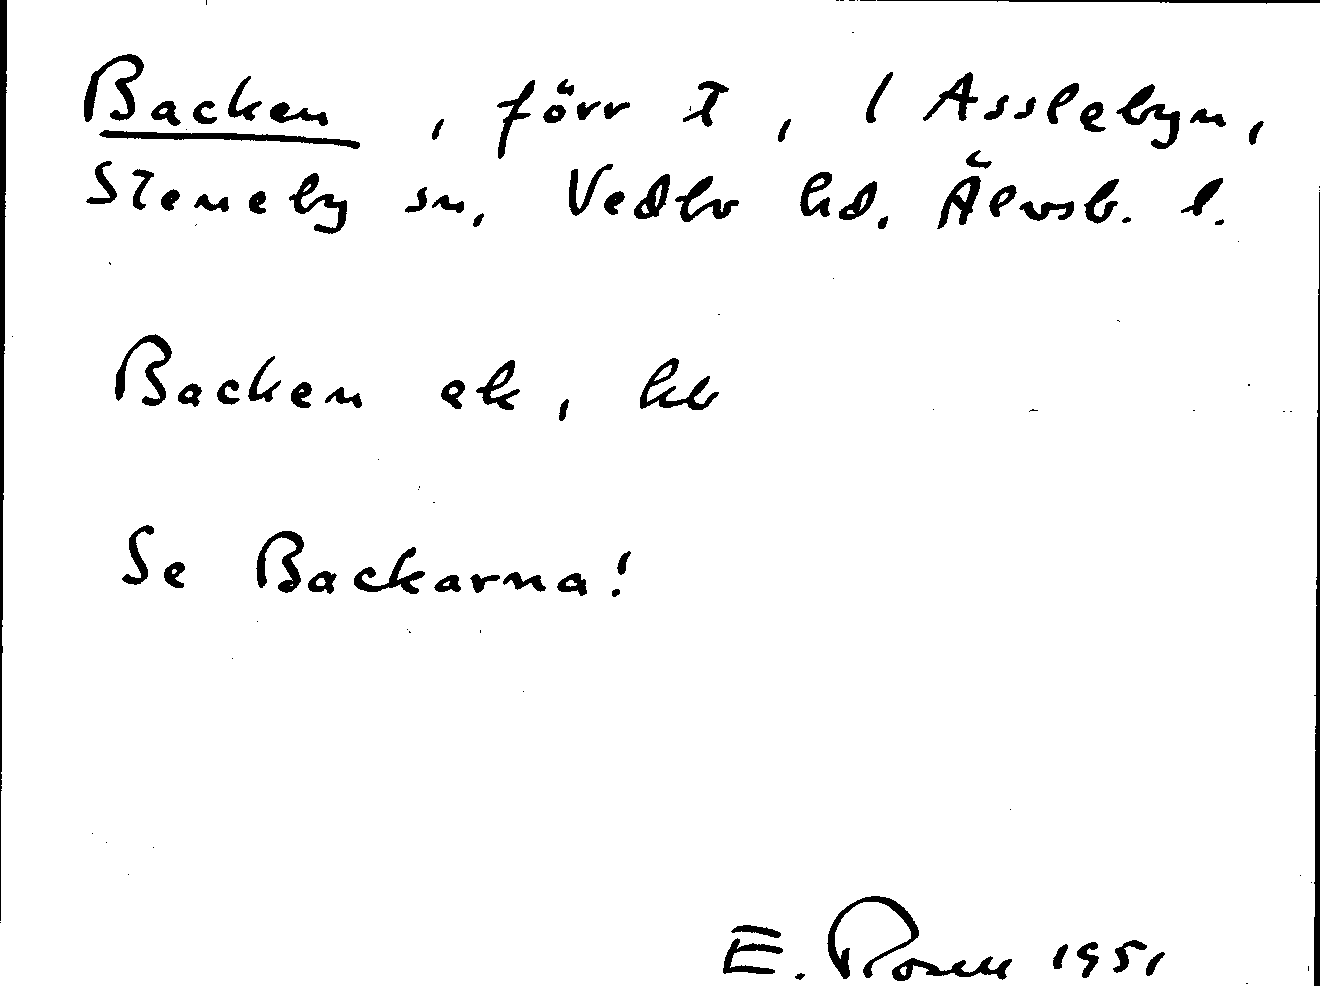 Backen, förr T, i Asslebyn,
Steneby sn, Vedbo hd. Älvsb. l.
Backen ek, kb
Se Backarna!
E. Rosell 1951